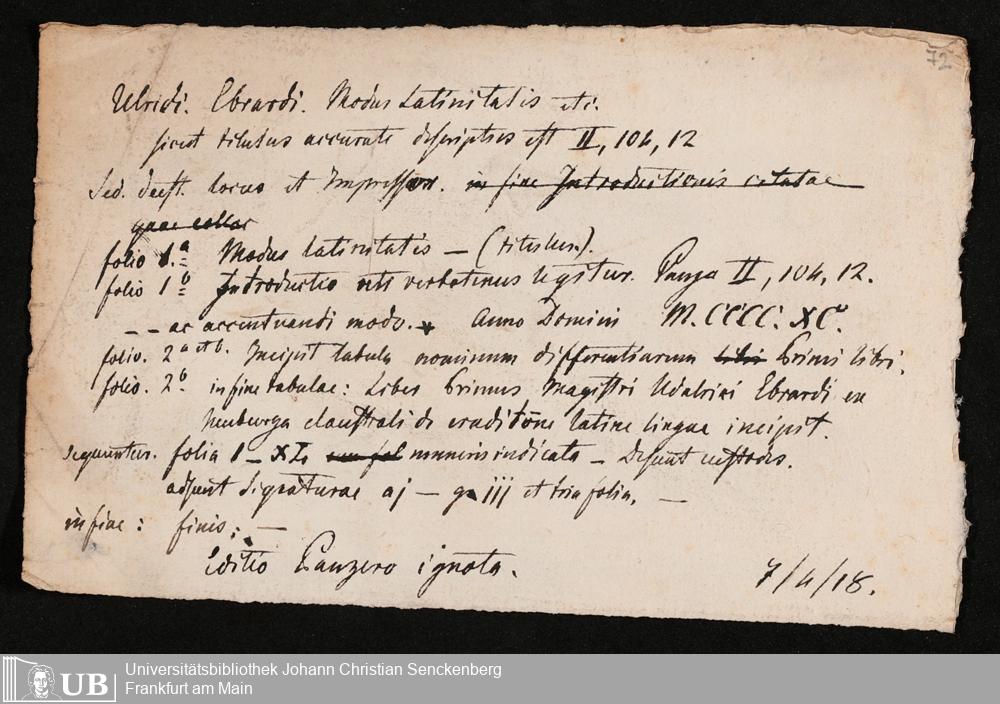 72
Ulrici. Ebrardi. Modus Latinitatis etc.
sicut titulus accurate descriptus est II, 104, 12
Sed. deest. locus et Impressor. in fine Introductionis citatae
quae
folio 1.a Modus Latinitatis — (titulus.).
folio 1 b Introductio uti verbotenus legitur. Panza II, 104, 12.
-- ac accentuandi modo. Anno Domini M. CCCC. XC.
folio. 2 a et b. Incipit tabula nominum differentiarum libri Primi libri.
folio. 2 b. in fine tabulae: Liber Primus Magistri Udalrici Ebrardi ex
Neuburga claustrali de eruditōne latine lingue incipit.
sequuntur. folia I — XL numeris indicata — Desunt custodes.
adsunt Signaturae aj — g iij et tria folia. —
in fine: finis. —
Editio Panzero ignota.
7/4/18.
UB
Universitätsbibliothek Johann Christian Senckenberg
Frankfurt am Main